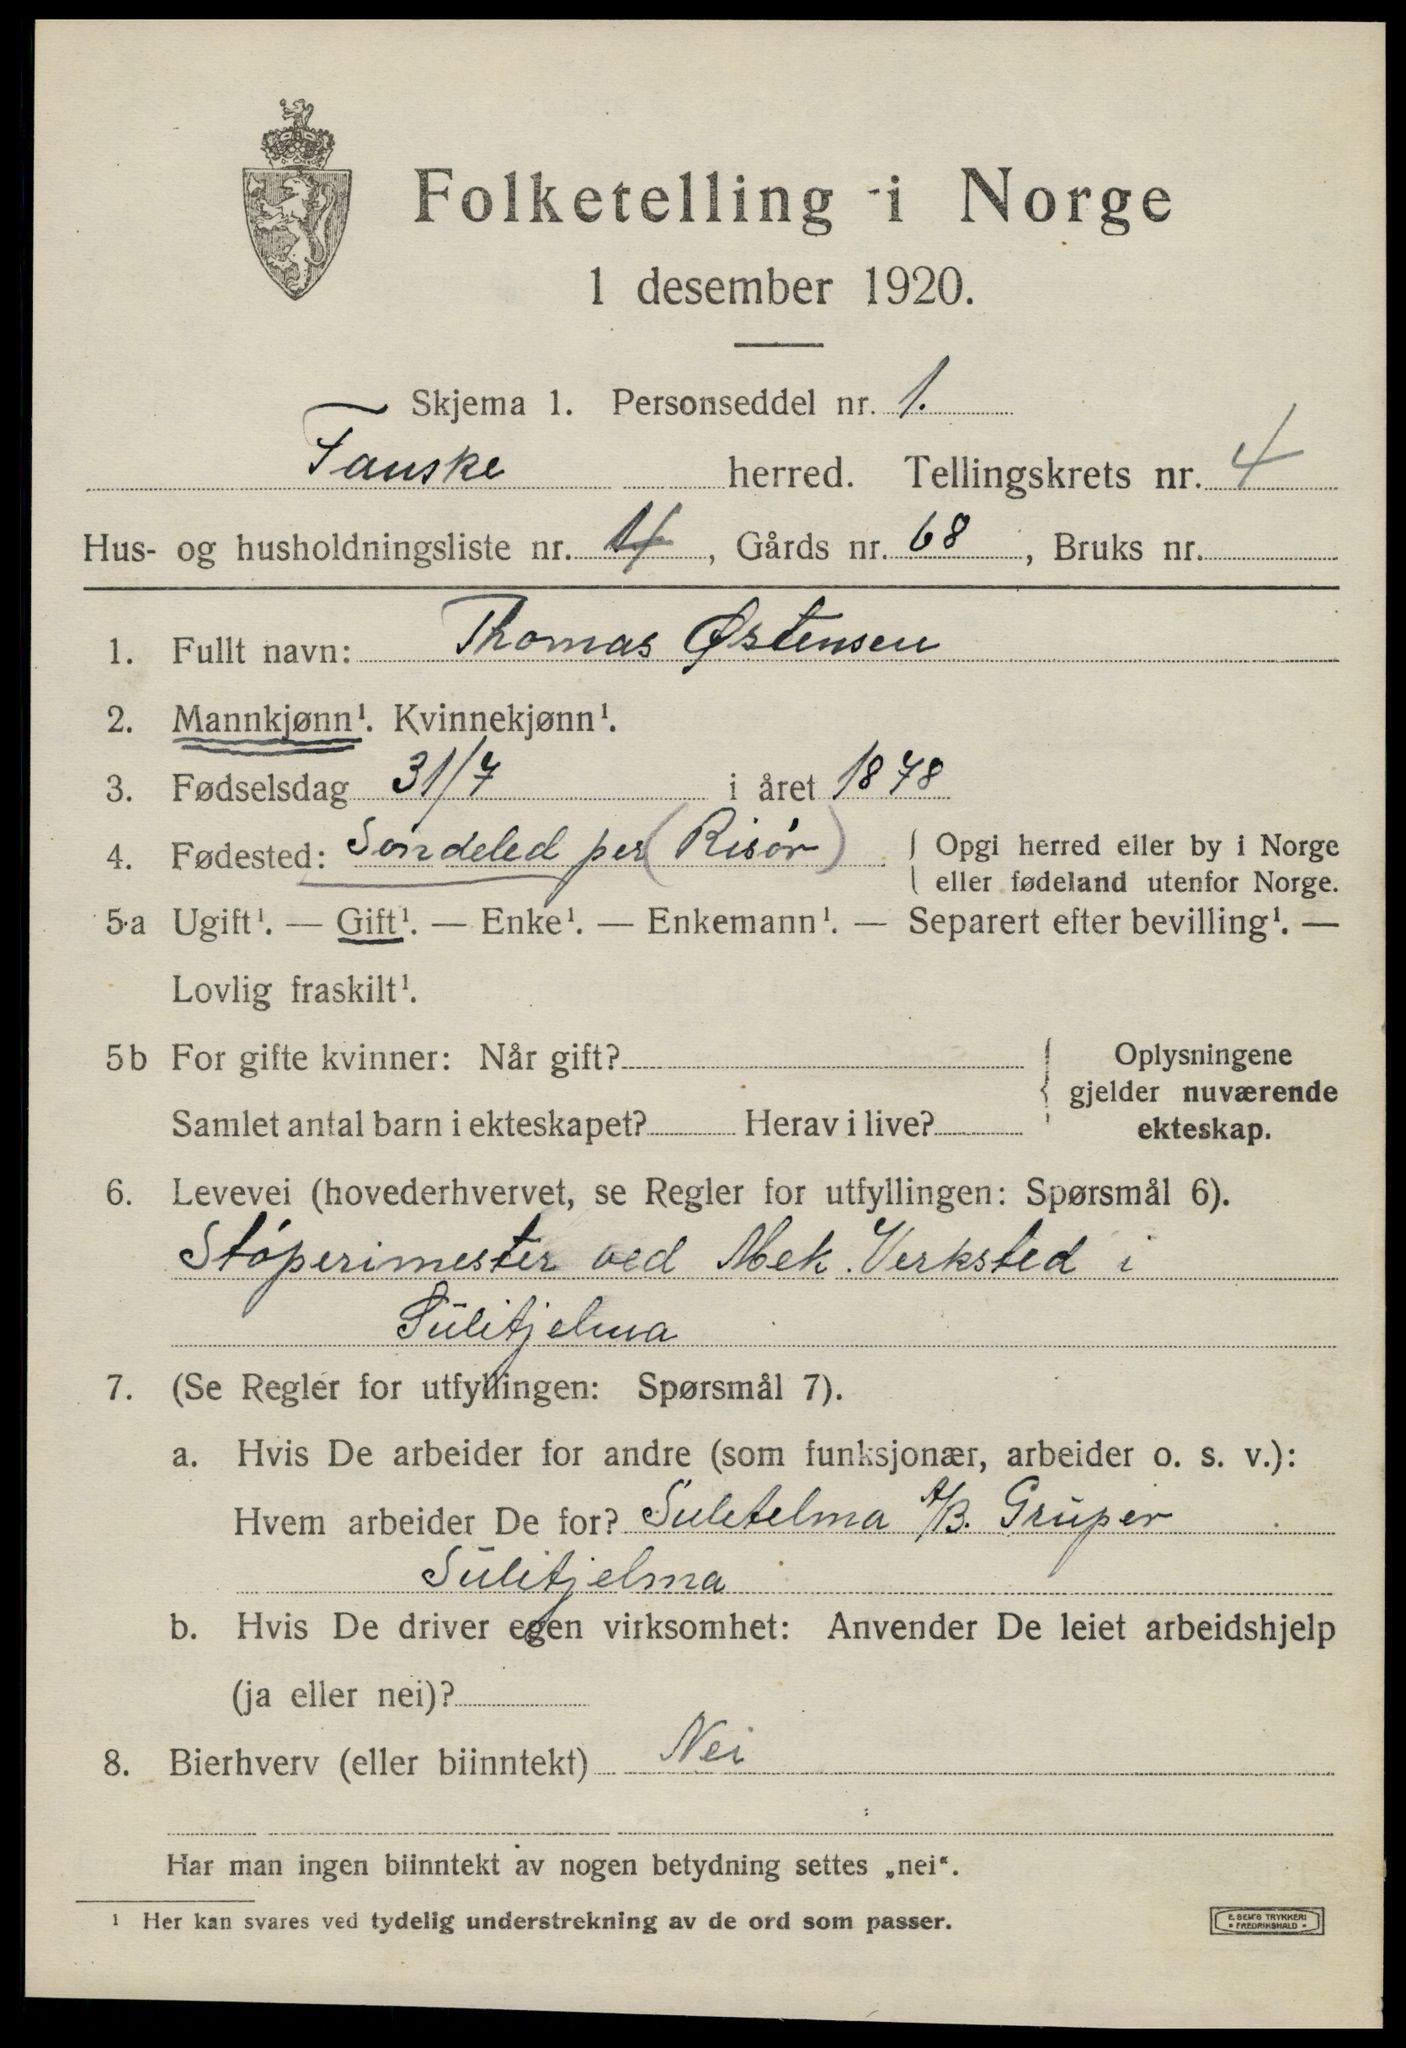 Folketelling i Norge
1 desember 1920.
Skjema 1. Personseddel nr. 1.
Fauske herred. Tellingskrets nr. 4
Hus- og husholdningsliste nr. 14, Gårds nr. 68, Bruks nr.
1. Fullt navn: Thomas Østensen
2. Mannkjønn¹. Kvinnekjønn¹.
3. Fødselsdag 31/7 i året 1878
4. Fødested: Söndeled per (Risör) { Opgi herred eller by i Norge
eller fødeland utenfor Norge.
5a Ugift¹. — Gift¹. — Enke¹. — Enkemann¹. — Separert efter bevilling¹. —
Lovlig fraskilt¹.
5b For gifte kvinner: Når gift? { Oplysningene
gjelder nuværende
Samlet antal barn i ekteskapet? Herav i live? ekteskap.
6. Levevei (hovederhvervet, se Regler for utfyllingen: Spørsmål 6).
Stóperimester ved Mek. Verksted i
Sulitjelma
7. (Se Regler for utfyllingen: Spørsmål 7).
a. Hvis De arbeider for andre (som funksjonær, arbeider o. s. v.):
Hvem arbeider De for? Suletelma A/B. Gruper
Sulitjelma
b. Hvis De driver egen virksomhet: Anvender De leiet arbeidshjelp
(ja eller nei)?
8. Bierhverv (eller biinntekt) Nei
Har man ingen biinntekt av nogen betydning settes „nei“.
¹ Her kan svares ved tydelig understrekning av de ord som passer.
E. SEM'S TRYKKERI
FREDRIKSHALD